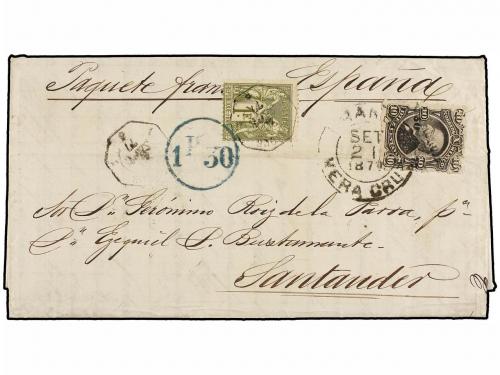 Paquete fran España
1F
SET
21
187
VERA CRU
1P50
Sor Dn. Gerónimo Roiz de la Parra, pa
Dn. Ezequiel S. Bustamante.
Santander